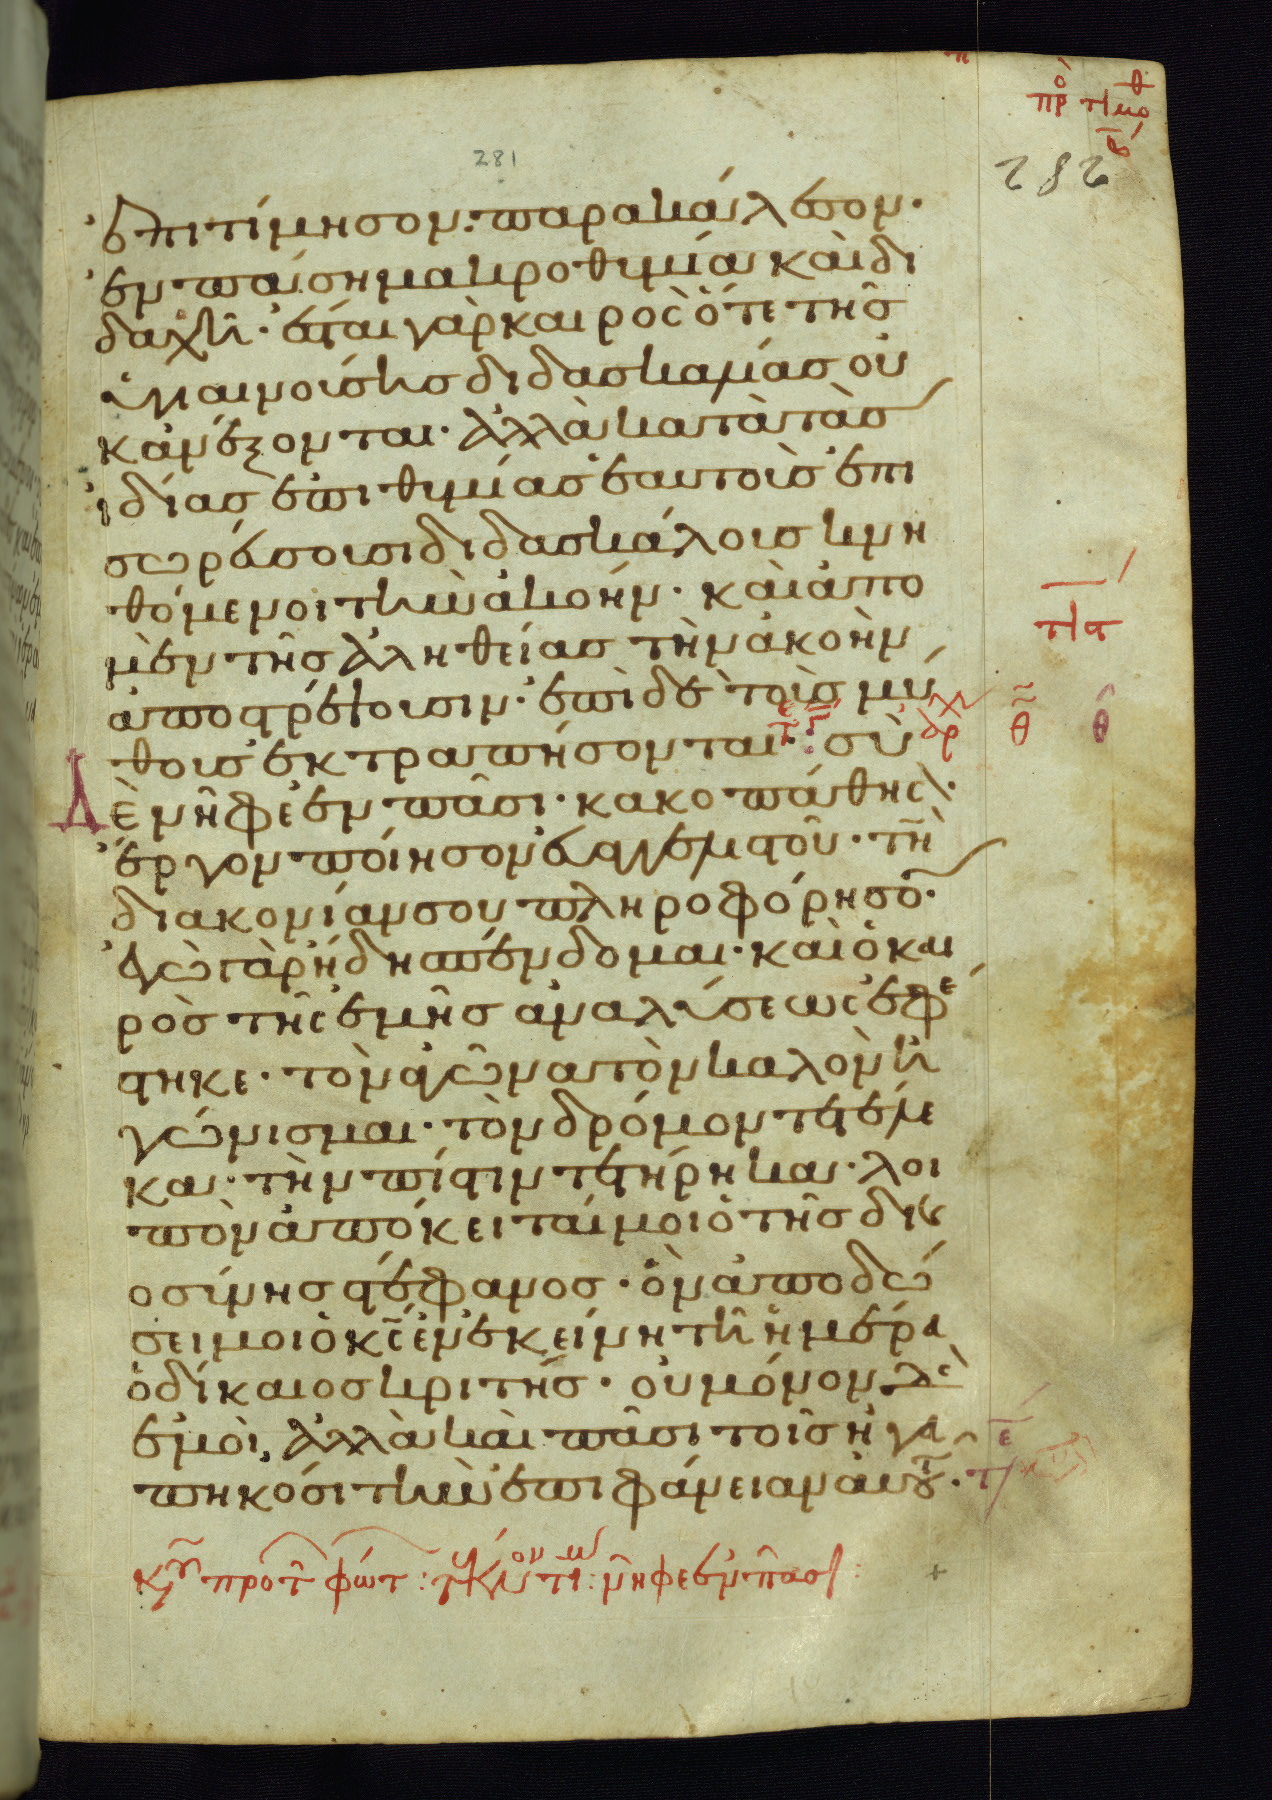 πρ̅ο̅ τιμο θ
β
281
282
ἐπιτίμησον· παρακάλεσον·
ἐν πάσῃ μακροθυμίᾳ καὶ δι
δαχῆ· ἔσται γὰρ καιρὸς ὅτε τῆς
ὑγιαινούσης διδασκαλίας οὐ
κ ἀνέξονται· ἀλλὰ κατὰ τὰς
ἰδίας ἐπιθυμίας ἑαυτοῖς ἐπι
σωρεύσουσι διδασκάλους κνη
θόμενοι τὴν ἀκοήν· καὶ ἀπο
μὲν τῆς ἀληθείας τὴν ἀκοὴν
ἀποστρέψουσιν· ἐπὶ δὲ τοὺς μύ
θους ἐκτραπήσονται· σὺ
δὲ νῆφε ἐν πᾶσι· κακοπάθησον·
ἔργον ποίησον εὐαγγελιστοῦ· τὴν
διακονίαν σου πληροφόρησον·
ἐγὼ γὰρ ἤδη σπένδομαι· καὶ ὁ και
ρὸς τῆς ἐμῆς ἀναλύσεως ἐφέ
στηκε· τὸν ἀγῶνα τὸν καλὸν ἠ
γώνισμαι· τὸν δρόμον τετέλε
κα· τὴν πίστιν τετήρηκα· λοι
πὸν ἀπόκειταί μοι ὁ τῆς δικαι
οσύνης στέφανος· ὃν ἀποδώ
σει μοι ὁ κ̅ς̅ ἐν ἐκείνῃ τῇ ἡμέρᾳ
ὁ δίκαιος κριτής· οὐ μόνον δὲ
ἐμοὶ, ἀλλὰ καὶ πᾶσι τοῖς ἠγα
πηκόσι τὴν ἐπιφάνειαν αὐτοῦ·
κυ προ τ φώτ : τκν τι : νῆφε ἐν πᾶσι :